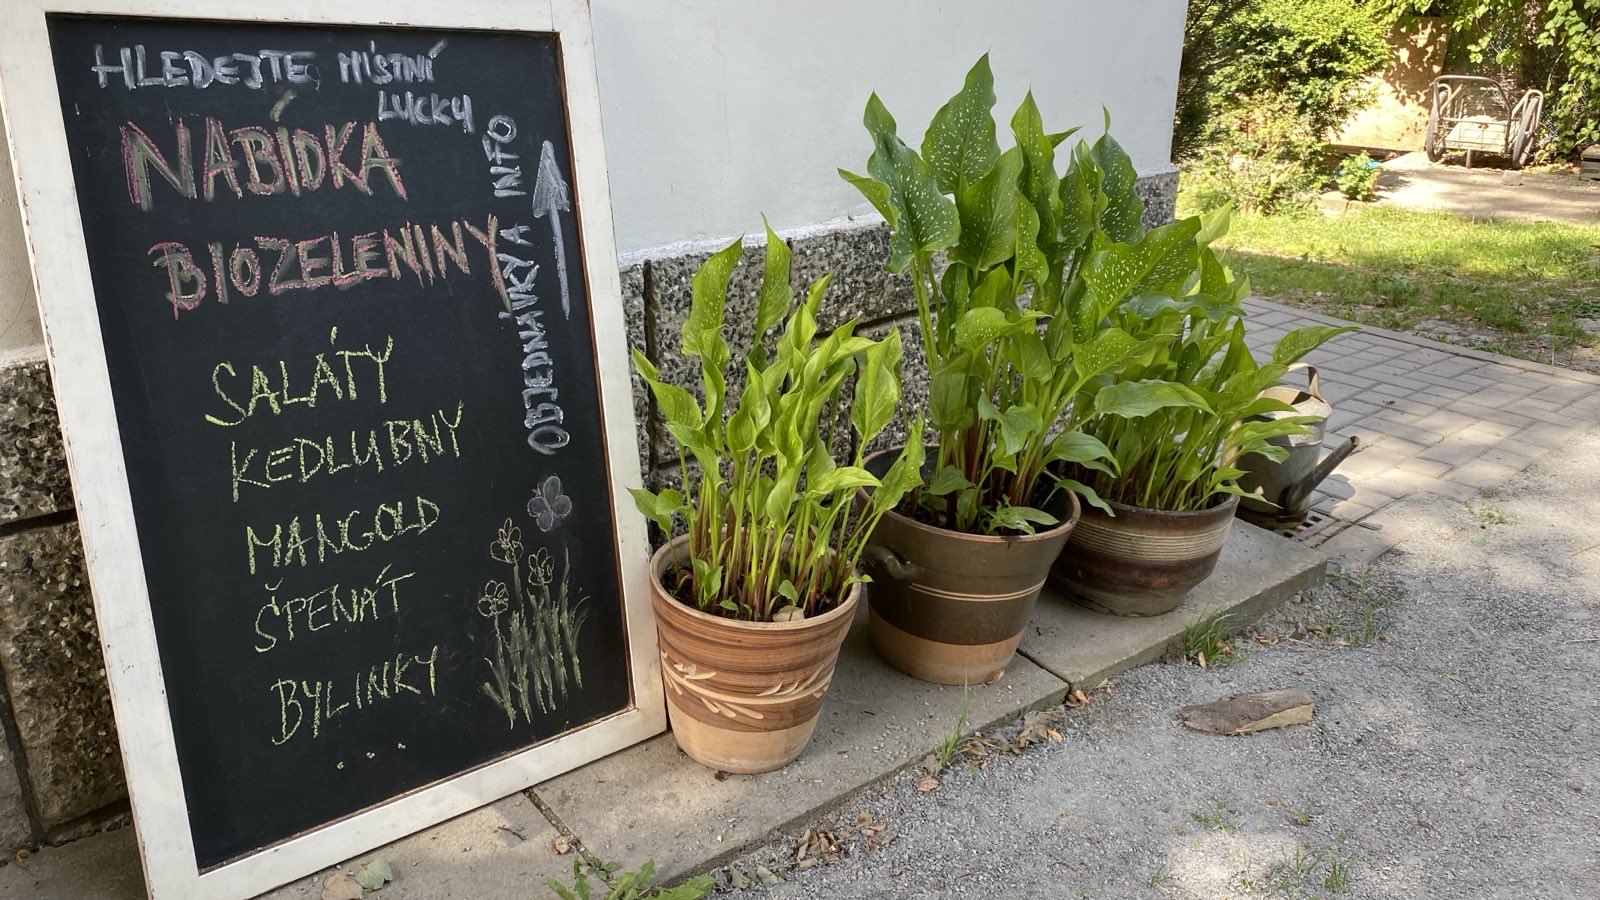 HLEDEJTE MÍSTNÍ
LUCKY
NABÍDKA
BIOZELENINY
OBJEDNÁVKY A INFO
SALÁTY
KEDLUBNY
MANGOLD
ŠPENÁT
BYLINKY
...